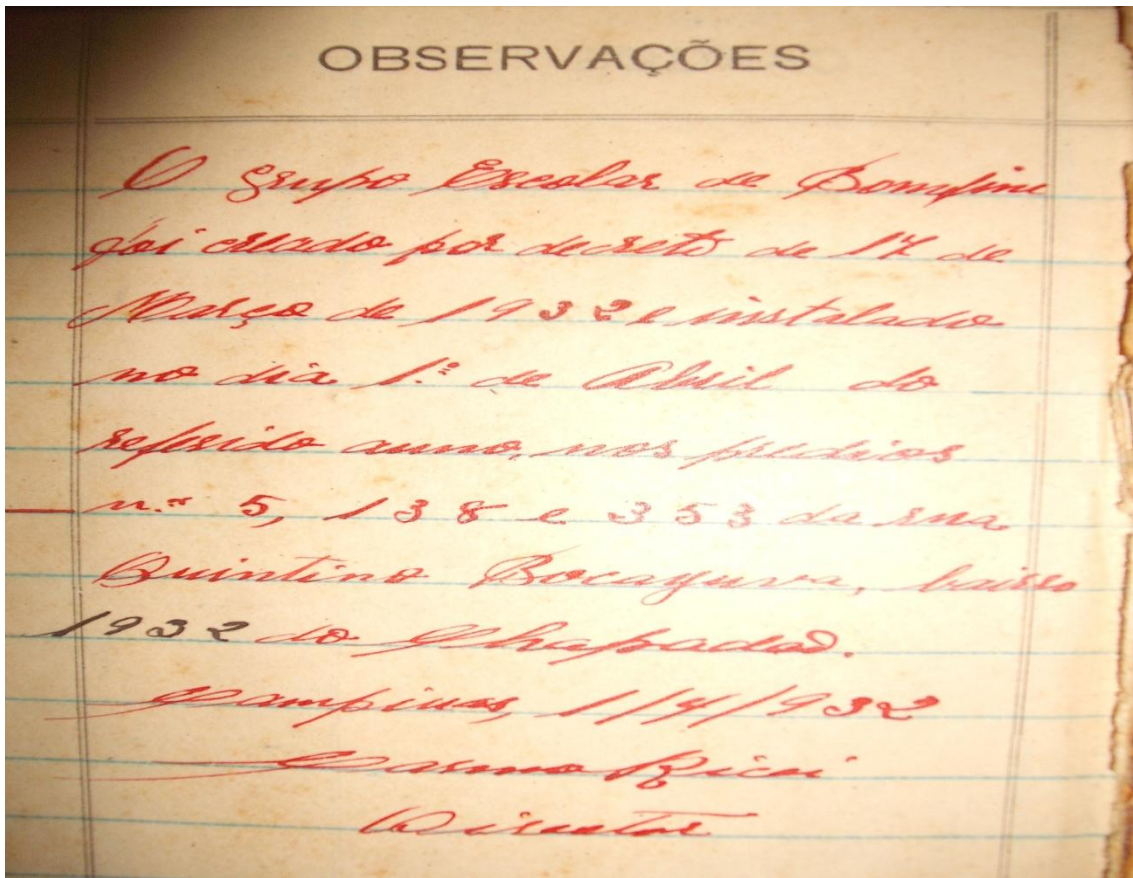 OBSERVAÇÕES
O grupo Escolar de Bomfim
foi creado por decreto de 17 de
Março de 1932 e installado
no dia 1.º de Abril do
referido anno, nos predios
n.os 5, 138 e 353 da rua
Quintino Bocayuva, bairro
1932 do Chapadão.
Campinas, 1/4/932
Carmo Ricci
Director